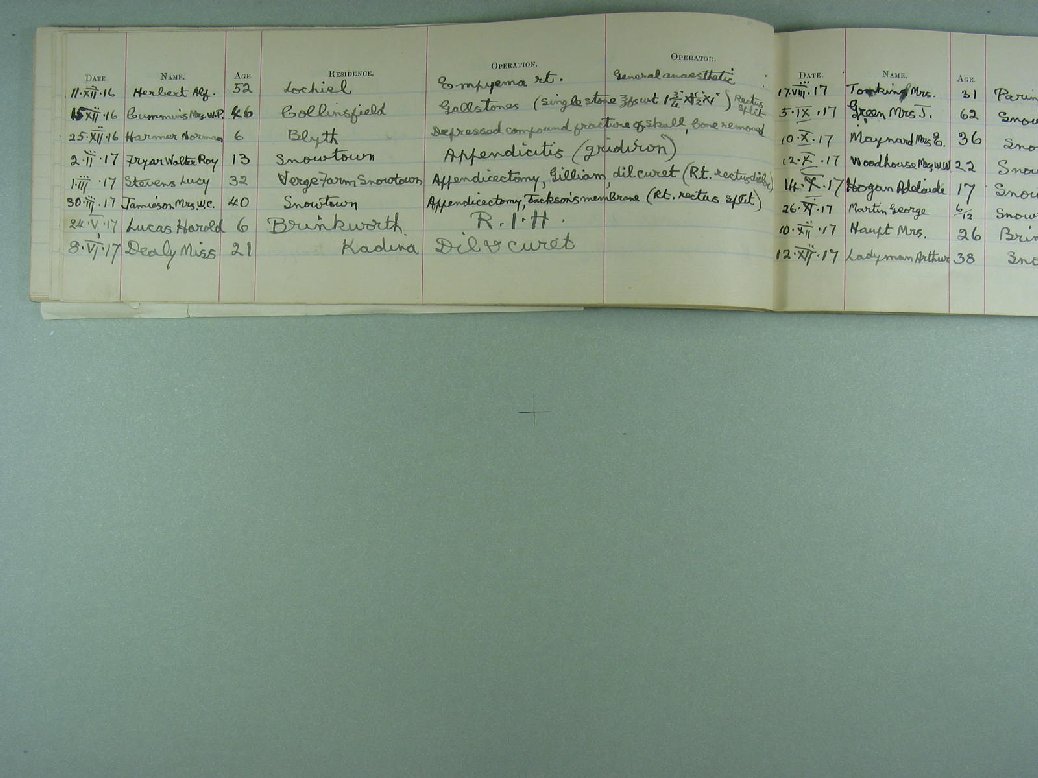 DATE. NAME. AGE. RESIDENCE. OPERATION. OPERATOR.
11·XII·16 Herbert Alf. 52 Lochiel Empyema rt. General anaesthetic
15·XII·16 Cummins Mrs W.P. 46 Collinsfield Gallstones (Single stone Rectus split
25·XII·16 Harmer Norman 6 Blyth Depressed compound fracture of skull, bone removed
2·II·17 Fryer Walter Roy 13 Snowtown Appendicitis (gridiron)
1·III·17 Stevens Lucy 32 Verge Farm Snowtown Appendicectomy, Gilliam, dil curet (Rt. rectus
30·III·17 Jamieson Mrs W.C. 40 Snowtown Appendicectomy, Jackson's membrane (Rt. rectus split)
24·V·17 Lucas Harold 6 Brinkworth R.I.H.
8·VI·17 Dealy Miss 21 Kadina Dil & curet
DATE. NAME. AGE.
17·VIII·17 Mrs. 31
5·IX·17 Green Mrs J. 62 Snow
10·X·17 Maynard Mrs E. 36 Sno
12·X·17 Woodhouse Mrs W.W 22 Snow
14·X·17 Hogan Adelaide 17 Snow
26·XI·17 Martin George 6/12 Snow
10·XII·17 Haupt Mrs. 26 Brin
12·XII·17 Ladyman Arthur 38 Sno